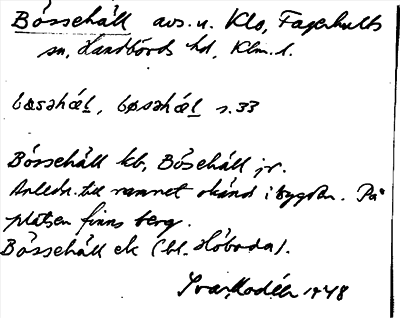 Bösshäll avs. u. Klo, Fagerhults
sn, Handbörds hd, Klm. l.
bøsəhæḷ, bøsəhæḷ s. 33
Bössehäll kb, Böšehäll jr.
Anledn. till namnet okänd i bygden. På
platsen finns berg.
Bössehäll ek (bl. Flöboda).
Ivar Modéer 1948